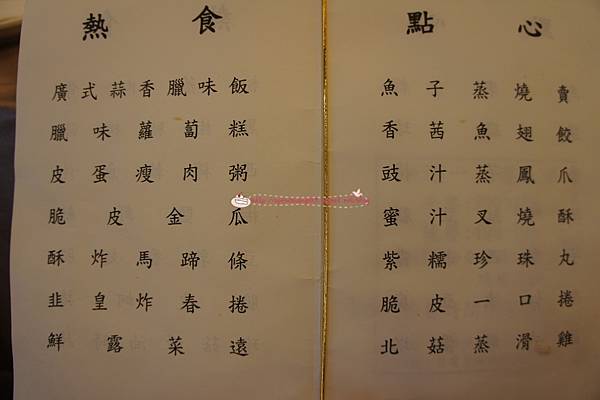 熱食
廣式蒜香臘味飯
臘味蘿蔔糕
皮蛋瘦肉粥
脆皮金瓜
酥炸馬蹄條
韭皇炸春捲
鮮露菜遠
點心
魚子蒸燒賣
香茜魚翅餃
豉汁蒸鳳爪
蜜汁叉燒酥
紫糯珍珠丸
脆皮一口捲
北菇蒸滑雞